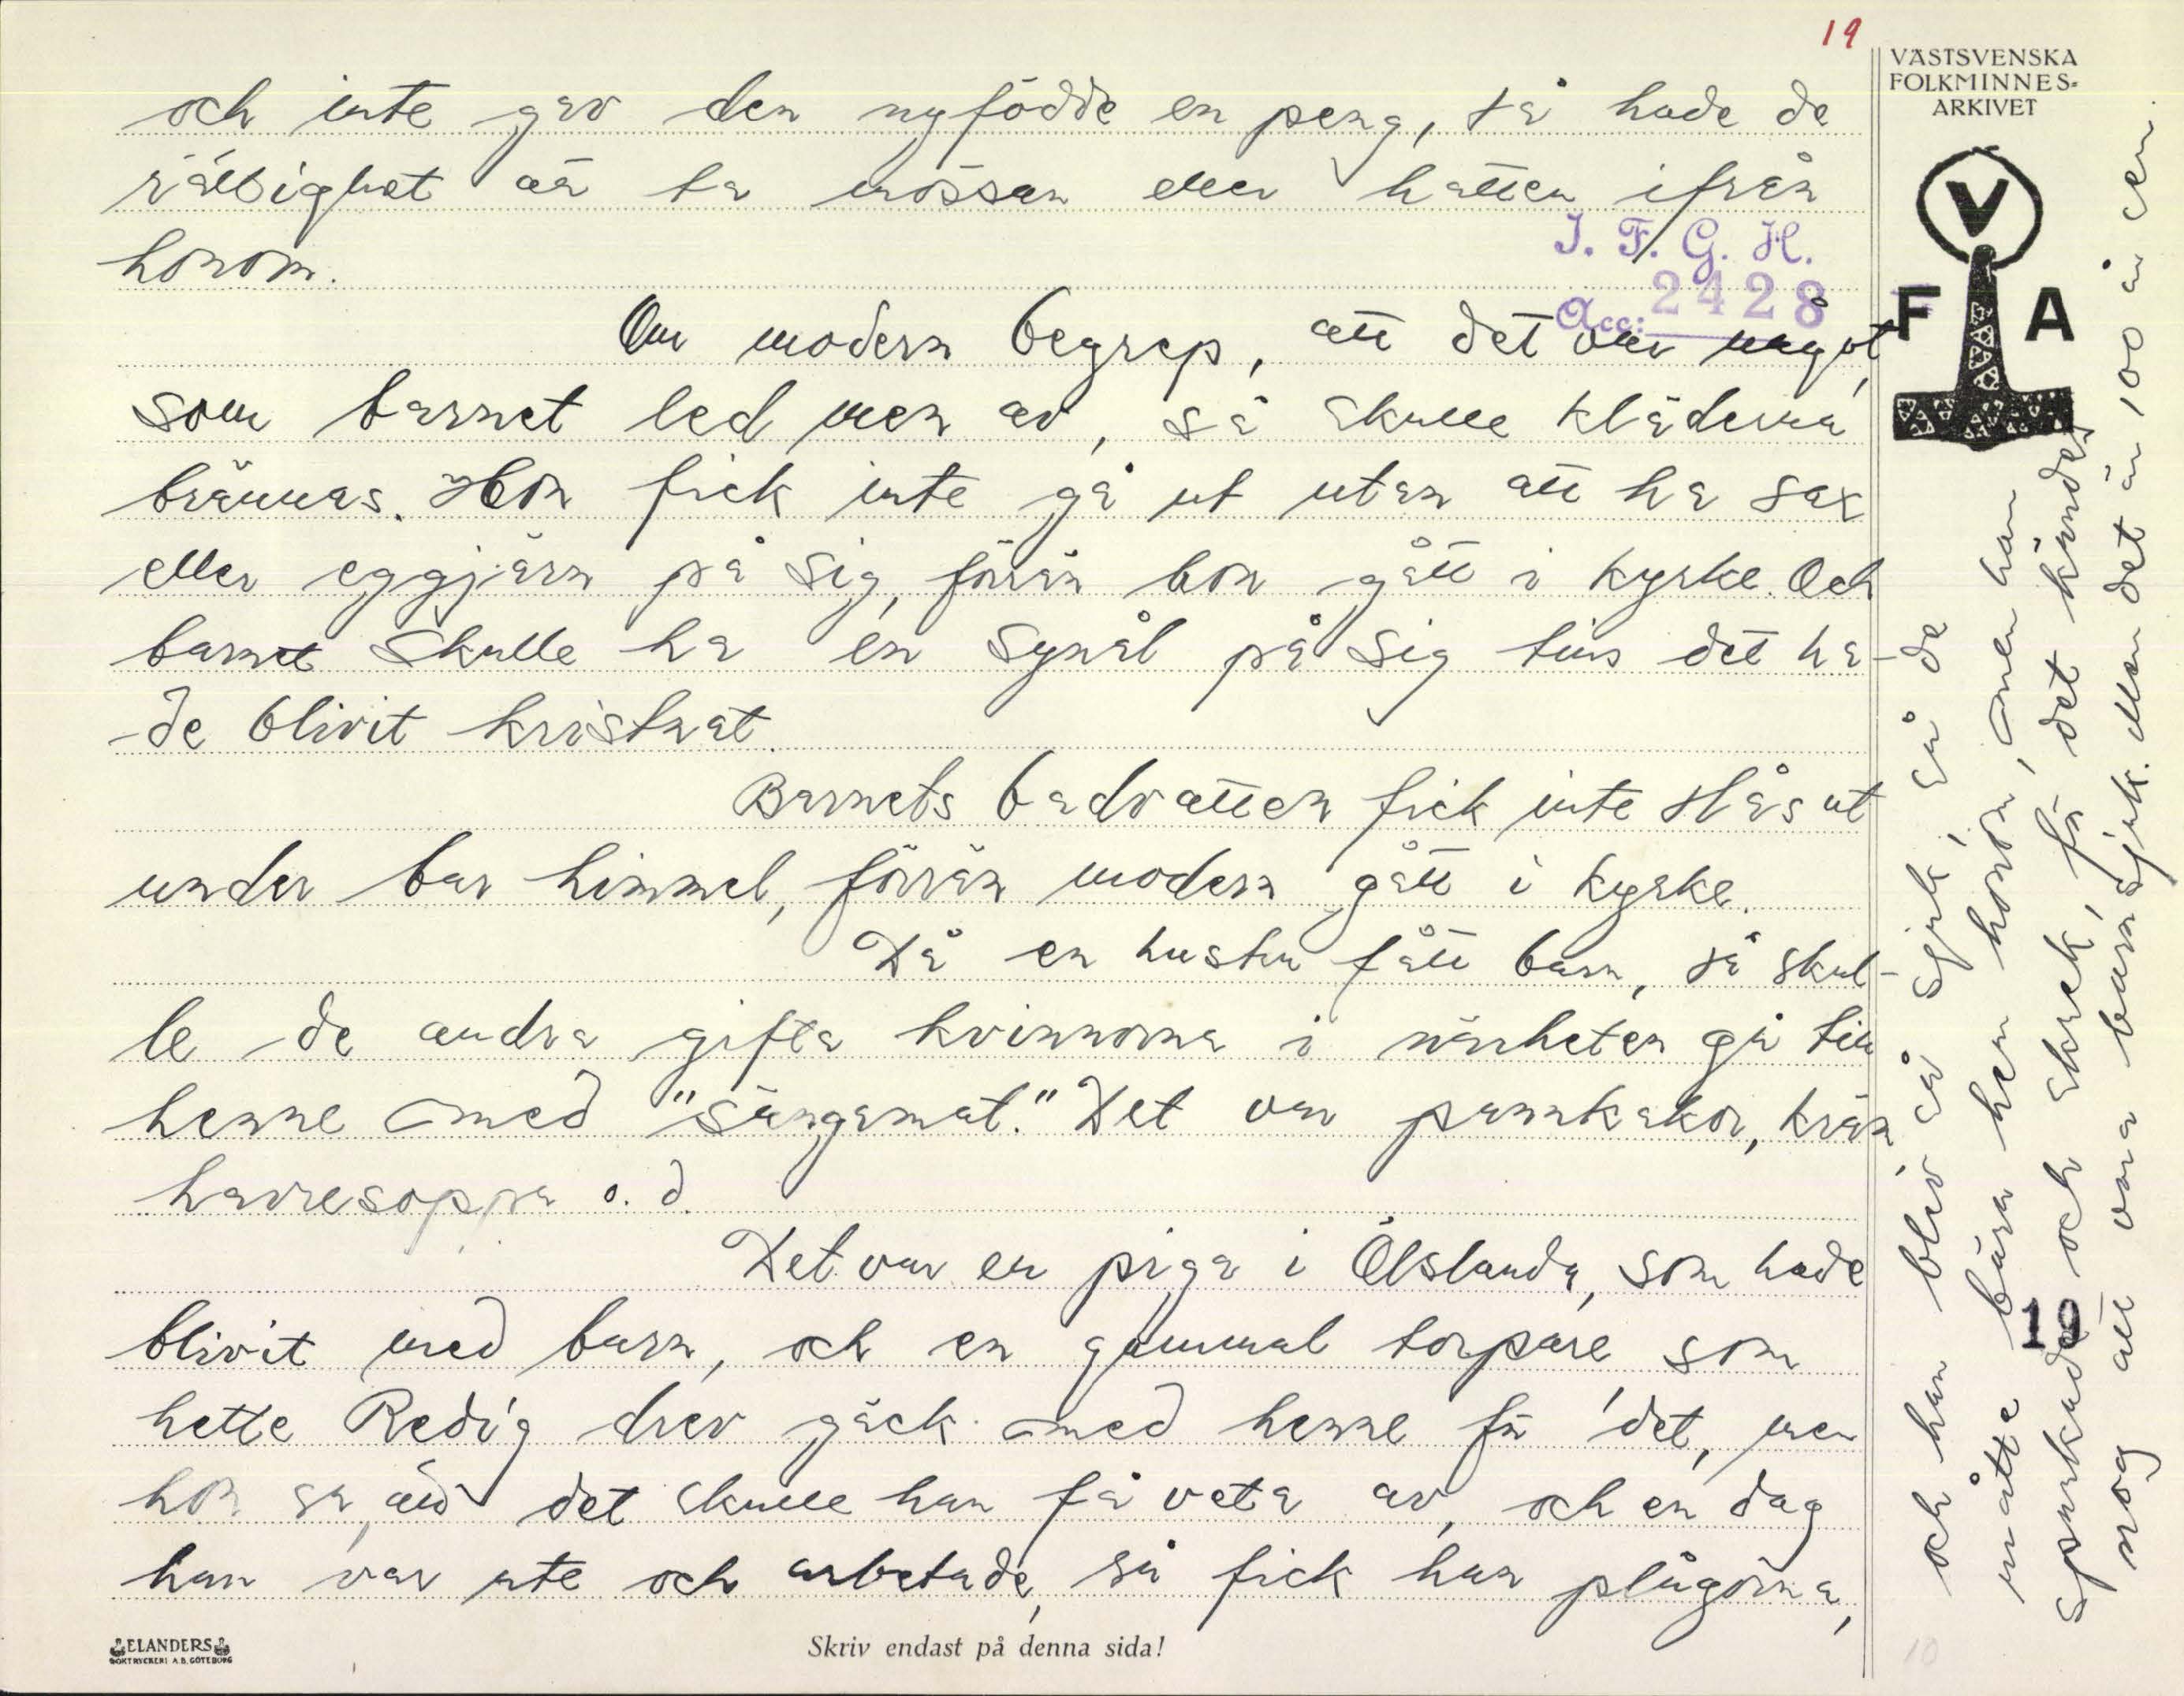 19
VÄSTSVENSKA
FOLKMINNES-
ARKIVET
V
F A
och inte gav den nyfödde en peng, så hade de
rättighet att ta mössan eller hatten ifrån
honom.
I. F. G. H.
Acc: 2428
Om modern begrep, att det var något,
som barnet led men av, så skulle kläderna
brännas. Hon fick inte gå ut utan att ha sax
eller eggjärn på sig, förrän hon gått i kyrka. Och
barnet skulle ha en synål på sig tins det ha-
de blivit kristnat.
Barnets badvatten fick inte slås ut
under bar himmel, förrän modern gått i kyrka.
Då en hustru fått barn, så skul-
le de andra gifta kvinnorna i närheten gå till
henne med "sängamat." Det var pannkakor, krän
havresoppa o. d.
Det var en piga i Ölslanda, som hade
blivit med barn, och en gammal torpare som
hette Redig drev gäck med henne för det, men
hon sa, att det skulle han få veta av, och en dag
han var ute och arbetade, så fick han plågorna,
och han blev så sjuk, så de
måtte bära hem honom, men han
sparkade och skrek, för det kändes
nog att vara barnsjuk. Men det är 100 år sen.
19
10
ELANDERS
BOKTRYCKERI A.B. GÖTEBORG
Skriv endast på denna sida!